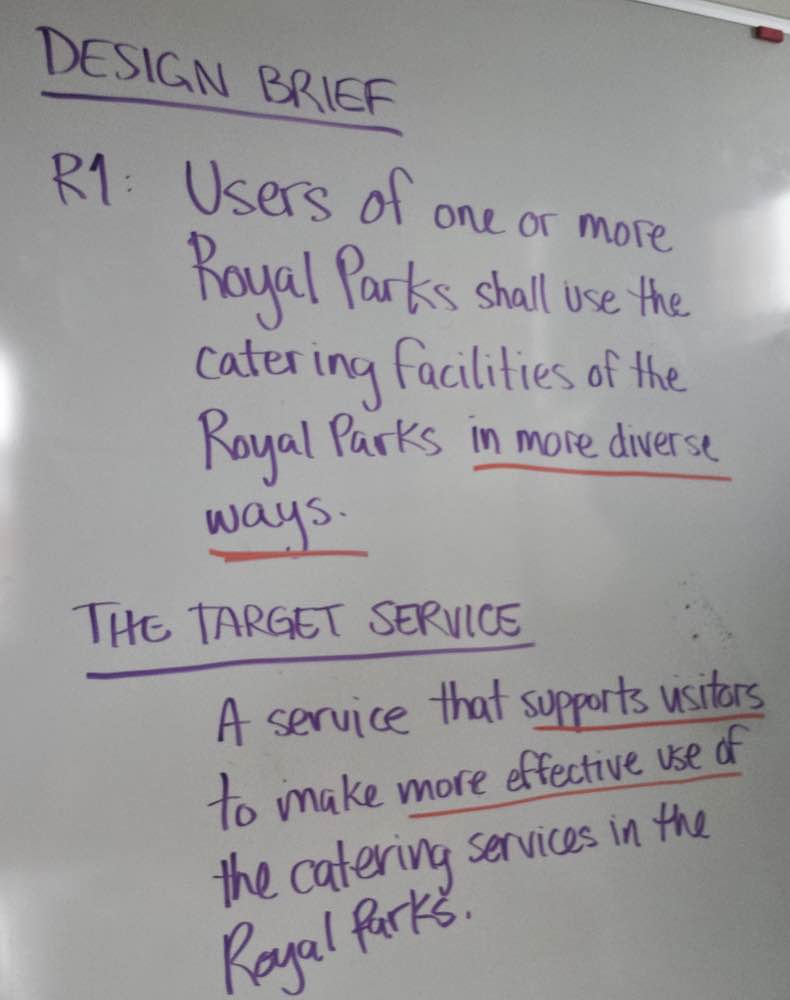 DESIGN BRIEF
R1: Users of one or more
Royal Parks shall use the
catering facilities of the
Royal Parks in more diverse
ways.
THE TARGET SERVICE
A service that supports visitors
to make more effective use of
the catering services in the
Royal Parks.